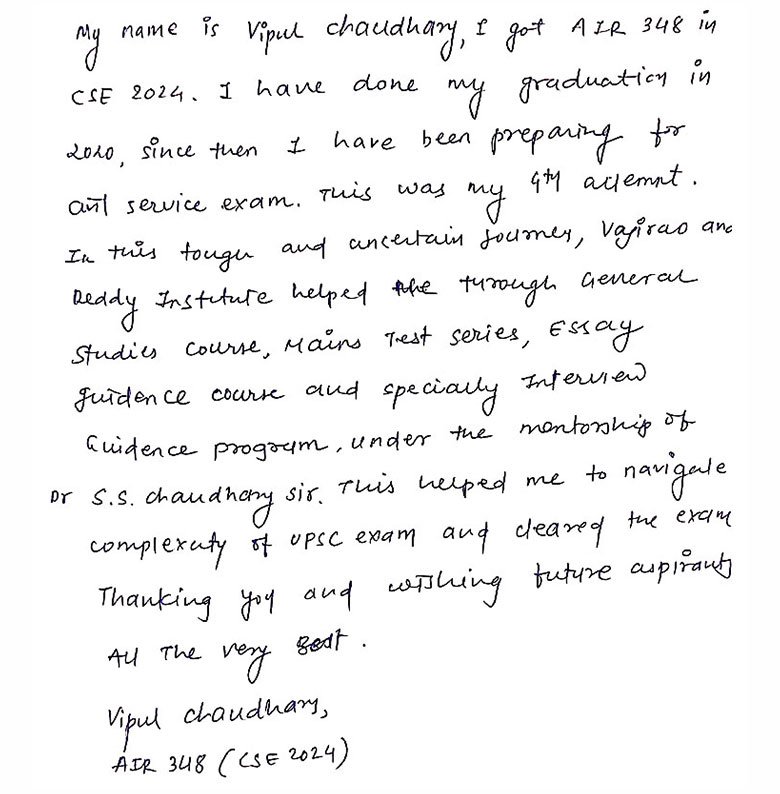 My name is Vipul chaudhary, I got AIR 348 in
CSE 2024. I have done my graduation in
2020, since then I have been preparing for
civil service exam. This was my 4th attempt.
In this tough and uncertain journey, Vajirao and
Reddy Institute helped the through General
Studies course, Mains Test series, Essay
guidence course and specially Interview
Guidence program, under the mentorship of
Dr S.S. chaudhary sir. This helped me to navigate
complexity of UPSC exam and cleared the exam
Thanking you and wishing future aspirants
All The very Best.
Vipul chaudhary,
AIR 348 (CSE 2024)